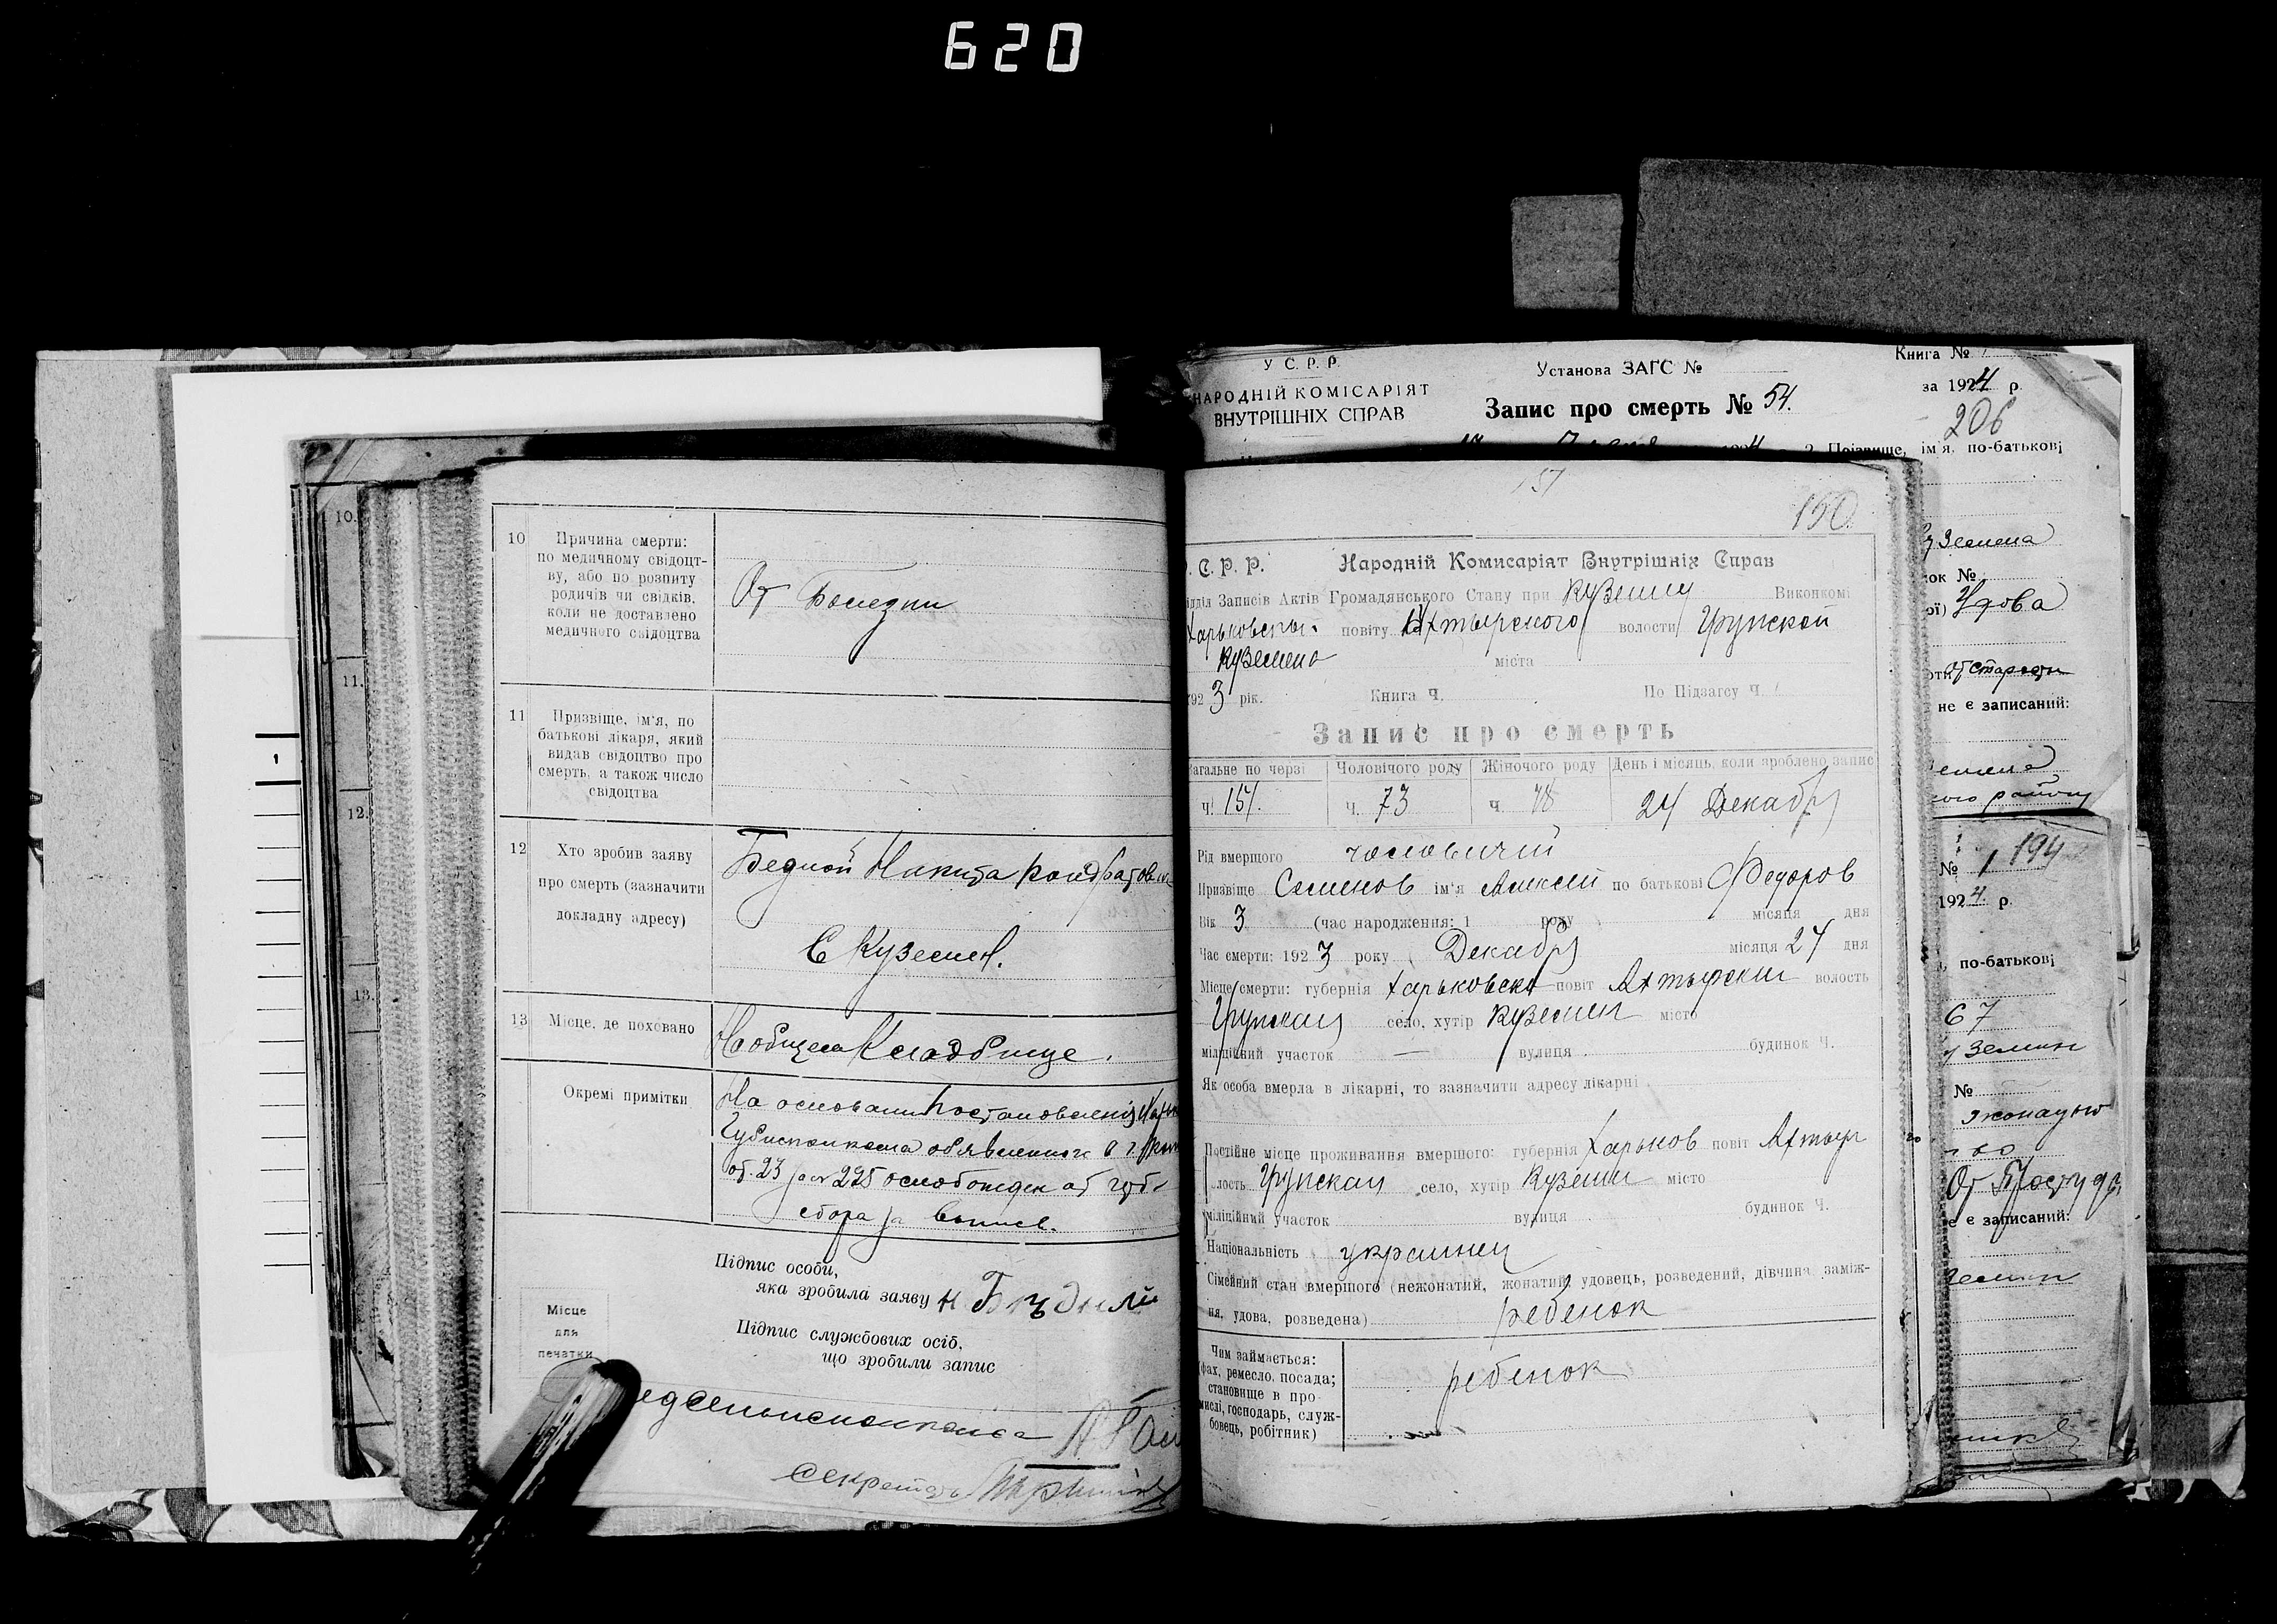 620
У С. Р. Р.
НАРОДНІЙ КОМІСАРІЯТ
ВНУТРІШНІХ СПРАВ
Установа ЗАГС №
Запис про смерть № 54.
Книга №
за 1924 р.
206
2 Прізвище, ім'я, по-батькові
10
Причина смерти:
по медичному свідоцт-
ву, або по розпиту
родичів чи свідків,
коли не доставлено
медичного свідоцтва
От Болезни
11
Призвіще, ім'я, по
батькові лікаря, який
видав свідоцтво про
смерть, а також число
свідоцтва
12
Хто зробив заяву
про смерть (зазначити
докладну адресу)
Бедной Никита
С Куземен.
13
Місце, де поховано
На общем Кладбище.
Окремі примітки
На основании Постановления
Губисполкома объявленного в г.
от 23 за № 225 освобожден от гуд.
сбора за выпис.
Підпис особи,
яка зробила заяву
Підпис службових осіб,
що зробили запис
Місце
для
печатки
Секретарь
10.
11.
12.
13.
1
151
150.
С. Р. Р. Народній Комисаріят Внутрішніх Справ
Записів Актів Громадянського Стану при Куземин Виконкомі
повіту Ахтырского волости Грунской
Куземено міста
1923 рік. Книга Ч. По Підзагсу Ч.
Запис про смерть
Загальне по черзі Чоловічого роду Жіночого роду День і місяць, коли зроблено запис
ч. 151. ч. 73 ч. 78 24 Декабря
Рід вмершого чоловичий
Призвіще Семенов ім'я Алексей по батькові Федоров
Вік 3 (час народження: 1 року місяця дня
Час смерти: 1923 року Декабря місяця 24 дня
Місце смерти: губернія Харьковска повіт Ахтырский волость
Грунская село, хутір Куземин місто
міліційний участок — вулиця будинок Ч.
Як особа вмерла в лікарні, то зазначити адресу лікарні
Постійне місце проживання вмершого: губернія Харьков повіт Ахтыр
Грунская село, хутір Куземин місто
міліційний участок вулиця будинок Ч.
Національність украинец
Сімейний стан вмершого (нежонатий, жонатий, удовець, розведений, дівчина, заміж-
ня, удова, розведена) ребенок
Чим займається:
(фах, ремесло, посада;
становище в про
мислі, господарь, служ-
бовець, робітник)
ребенок
Удова
не є записаний:
194
№ 1
1924. р.
по-батькові
67
№
От Простуды
є записаний: